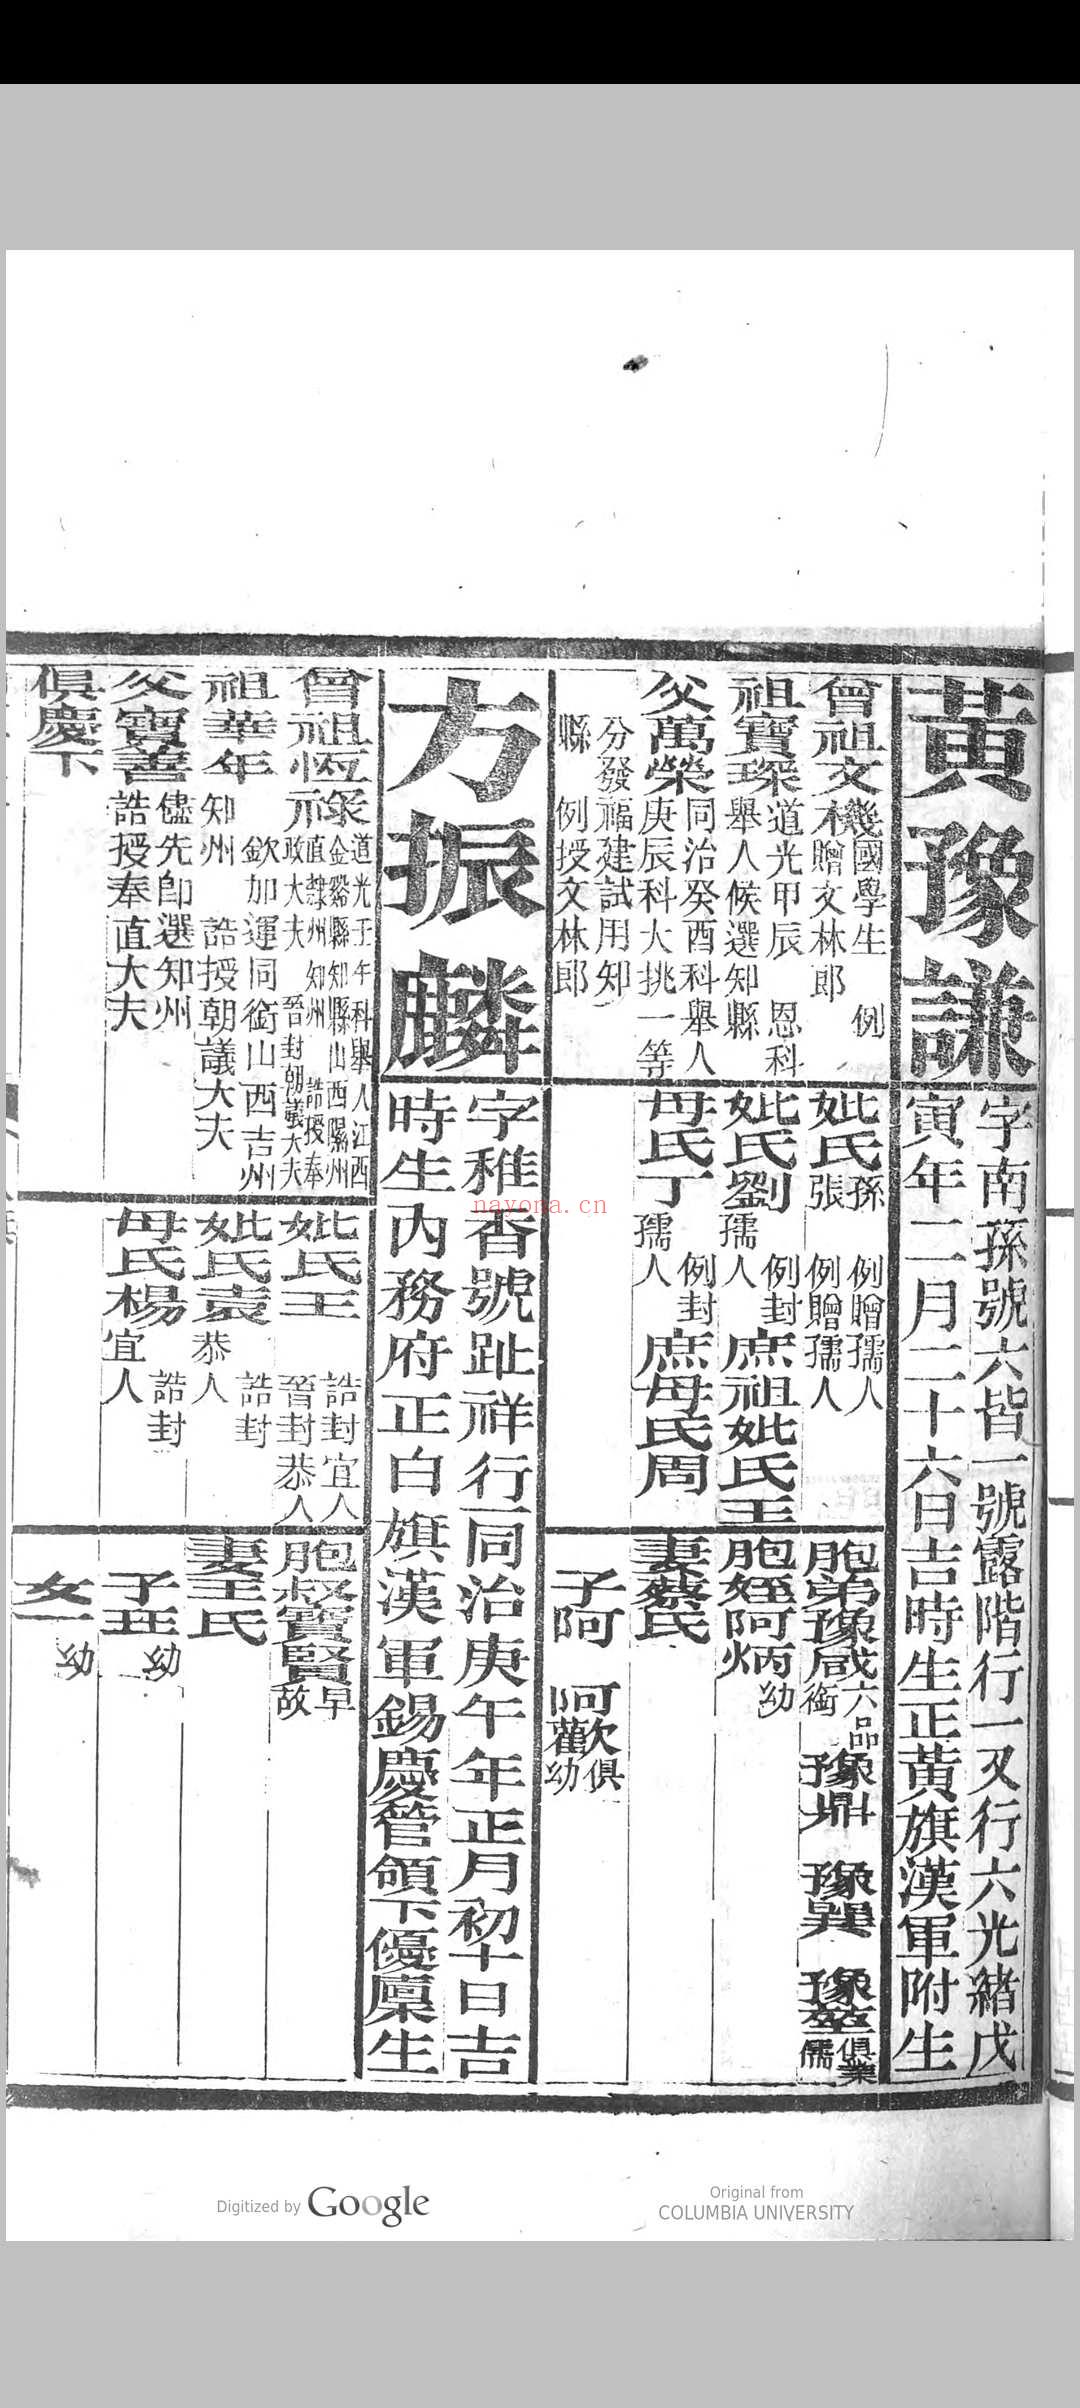 黃豫謙
字南孫號六皆一號露階行一又行六光緒戊
寅年二月二十六日吉時生正黃旗漢軍附生
曾祖文
幾國學生 例
木贈文林郎
妣氏
孫 例贈孺人
張 例贈孺人
胞弟豫咸
六品
銜
豫鼎 豫巽 豫
俱業
儒
祖寶琛
道光甲辰 恩科
舉人候選知縣
妣氏劉
例封
孺人
庶祖妣氏王
胞姪阿炳
幼
父萬榮
同治癸酉科舉人
庚辰科大挑一等
分發福建試用知
縣 例授文林郎
母氏丁
例封
孺人
庶母氏周
妻蔡氏
子阿 阿歡
俱
幼
方振麟
字稚香號趾祥行一同治庚午年正月初十日吉
時生內務府正白旗漢軍錫慶管領下優廩生
曾祖恆祿
道光壬午科舉人江西
金谿縣知縣山西隰州
直隸州知州 誥授奉
政大夫 晉封朝議大夫
妣氏王
誥封宜人
晉封恭人
胞叔寶賢
早
故
祖華年
欽加運同銜山西吉州
知州 誥授朝議大夫
妣氏袁
誥封
恭人
妻王氏
父寶善
儘先卽選知州
誥授奉直大夫
母氏楊
誥封
宜人
子
幼
俱慶下
女一
幼
nayona.cn
Digitized by Google
Original from
COLUMBIA UNIVERSITY